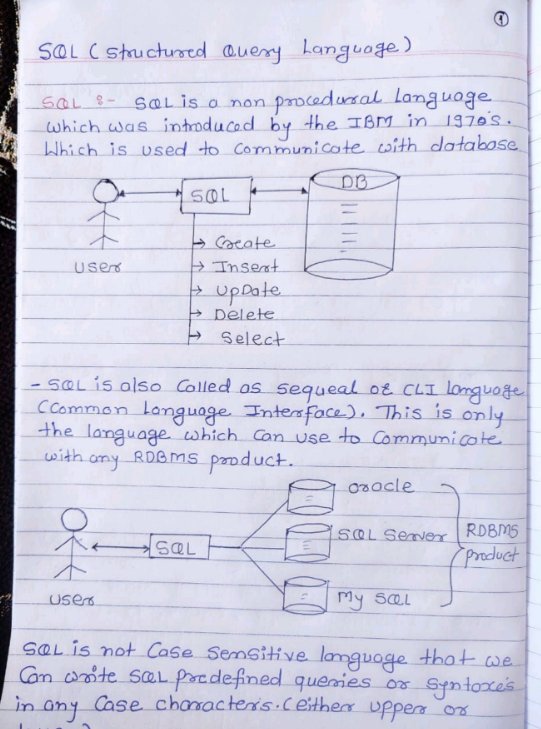 1
SQL (Structured Query Language)
SQL :- SQL is a non procedural Language
which was introduced by the IBM in 1970's.
Which is used to communicate with database
SQL
DB
user
→ Create
→ Insert
→ UpDate
→ Delete
→ Select
- SQL is also Called as sequeal or CLI language
(Common Language Interface). This is only
the language which Can use to Communicate
with any RDBMS product.
oracle
SQL Server
RDBMS
product
SQL
user
My SQL
SQL is not Case Sensitive language that we
Can write SQL predefined queries or Syntaxe's
in any Case characters. (either upper or